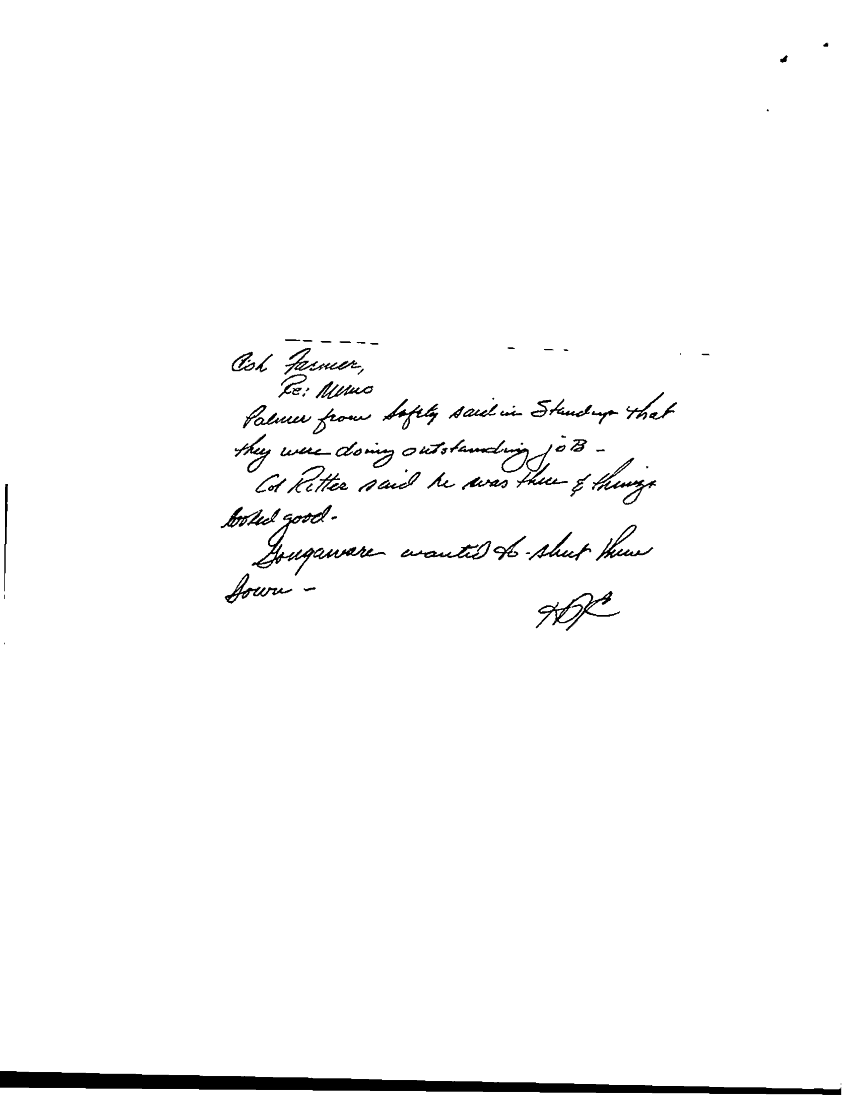 Farmer,
Re: Memo
Palmer from Safety said in Standup that
they were doing outstanding joB -
Col Ritter said he was there & things
looked good.
Gougaware wanted to shut them
down -